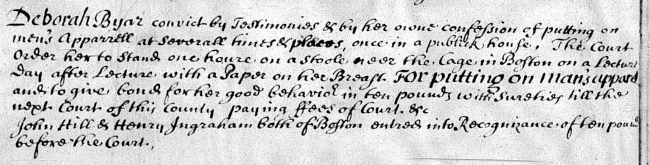 Deborah Byar convict by Testimonies & by her owne confession of putting on
mens Apparrell at severall times & places, once in a publick house, The Court
Order her to stand one houre on a stoole neer the Cage in Boston on a Lecture
Day after Lecture with a Paper on her Breast. For putting on mans appard
and to give bond for her good behavior in ten pounds with Sureties till the
next Court of this County paying ffees of Court &c
John Hill & Henry Ingraham both of Boston entred into Recognizance of ten pound
before the Court.